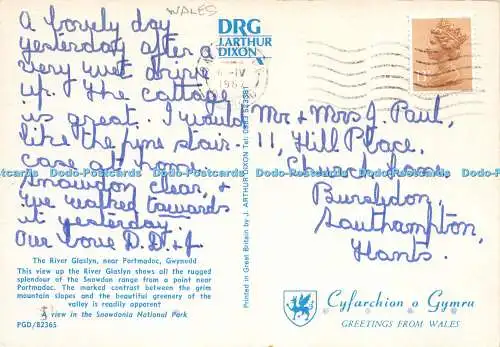 WALES
A lovely day
yesterday after a
very wet drive
up. The cottage
is great. I would
like the pine stair-
case at home.
Snowdon clear, &
we walked towards
it yesterday.
Our love D.D. & J.
DRG
J. ARTHUR
DIXON
6-IV
Mr & Mrs J. Paul,
11, Hill Place,
Church Lane,
Bursledon,
Southampton,
Hants.
The River Glaslyn, near Portmadoc, Gwynedd
This view up the River Glaslyn shows all the rugged
splendour of the Snowdon range from a point near
Portmadoc. The marked contrast between the grim
mountain slopes and the beautiful greenery of the
valley is readily apparent
A view in the Snowdonia National Park
PGD/82365
Printed in Great Britain by J. ARTHUR DIXON Tel: 0983 523381
Cyfarchion o Gymru
GREETINGS FROM WALES
Dodo-Postcards Dodo-Postcards Dodo-Postcards Dodo-Postcards Dodo-Postcards